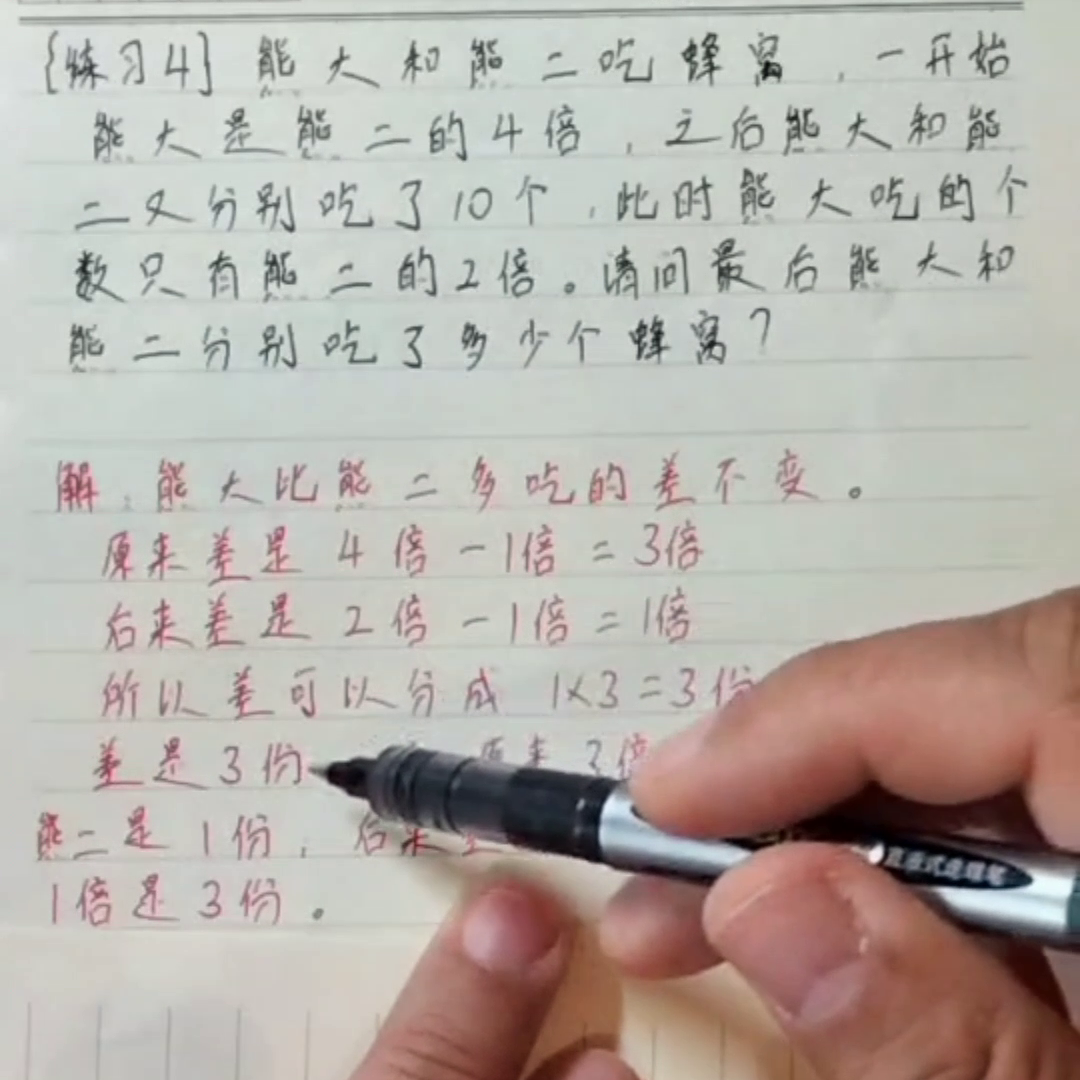 {练习4} 熊大和熊二吃蜂窝,一开始
熊大是熊二的4倍,之后熊大和熊
二又分别吃了10个,此时熊大吃的个
数只有熊二的2倍。请问最后熊大和
熊二分别吃了多少个蜂窝?
解:熊大比熊二多吃的差不变。
原来差是 4倍-1倍=3倍
后来差是 2倍-1倍=1倍
所以差可以分成 1×3=3份
差是3份 原来3倍
熊二是1份,后来差
1倍是3份。
直液式走珠笔